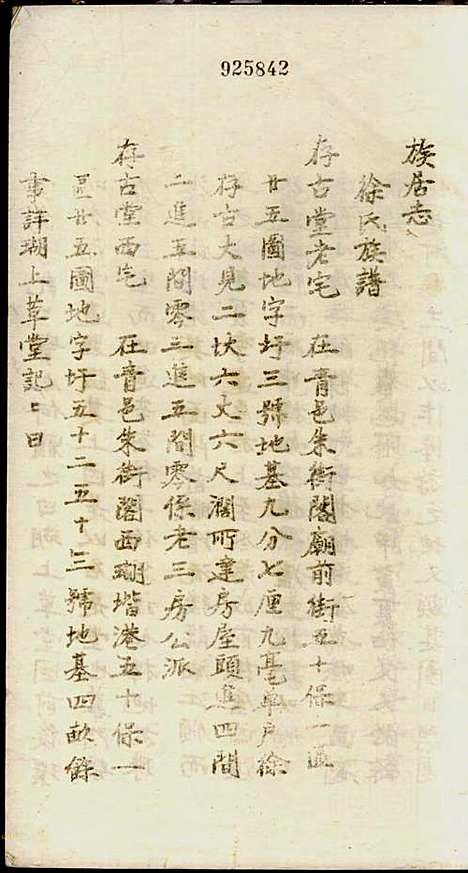 925842
族居志
徐氏族譜
存古堂老宅 在青邑朱街閣廟前街五十保一區
廿五圖地字圩三號地基九分七厘九毫單戶徐
存古大見二坎六丈六尺濶所建房屋頭進四間
二進五間零三進五間零係老三房公派
存古堂西宅 在青邑朱街閣西瑚堦港五十保一
區廿五圖地字圩五十二五十三號地基四畝餘
事詳瑚上草堂記記曰